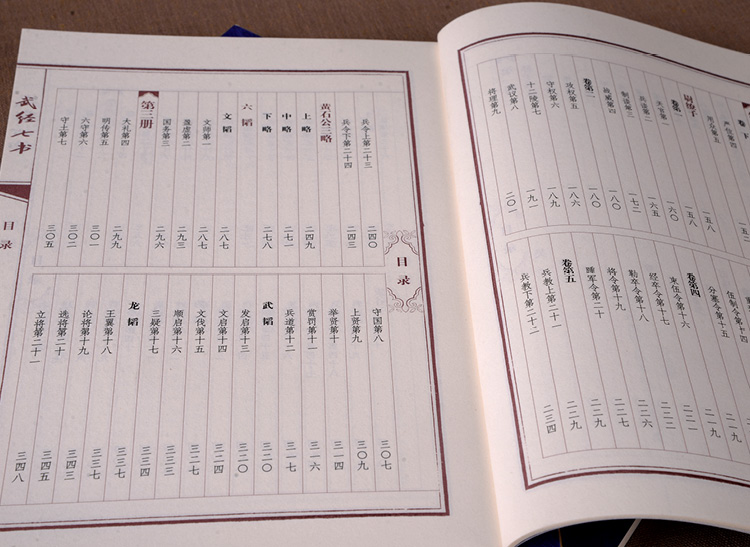 卷下
严位第四 一五二
用众第五 一五八
尉缭子 一五八
卷第一
天官第一 一六〇
兵谈第二 一六五
制谈第三 一七二
战威第四 一八〇
卷第二 一八〇
攻权第五 一八六
守权第六 一八九
十二陵七 一九一
武议第八
将理第九 二〇一
伍制令第十四 二一九
分塞令第十五 二一九
卷第四
束伍令第十六 二二一
经卒令第十七
勒卒令第十八 二二六
将令第十九 二二七
踵军令第二十 二二九
卷第五
兵教上第二十一 二二九
兵教下第二十二 二三四
目录
兵令上第二十三 二四〇
兵令下第二十四 二四三
黄石公三略
上略 二四九
中略 二七一
下略 二七八
六韬
文韬 二八七
文师第一 二八七
盈虚第二 二九三
国务第三 二九六
第三册
大礼第四 二九九
明传第五 三〇一
六守第六 三〇二
守土第七 三〇五
守国第八 三〇七
上贤第九 三〇九
举贤第十 三一四
赏罚第十一 三一六
兵道第十二 三一七
武韬 三二〇
发启第十三 三二〇
文启第十四 三二四
文伐第十五 三二七
顺启第十六 三三三
三疑第十七 三三四
龙韬 三三七
王翼第十八 三三七
论将第十九 三四三
选将第二十 三四五
立将第二十一 三四八
武经七书
目录